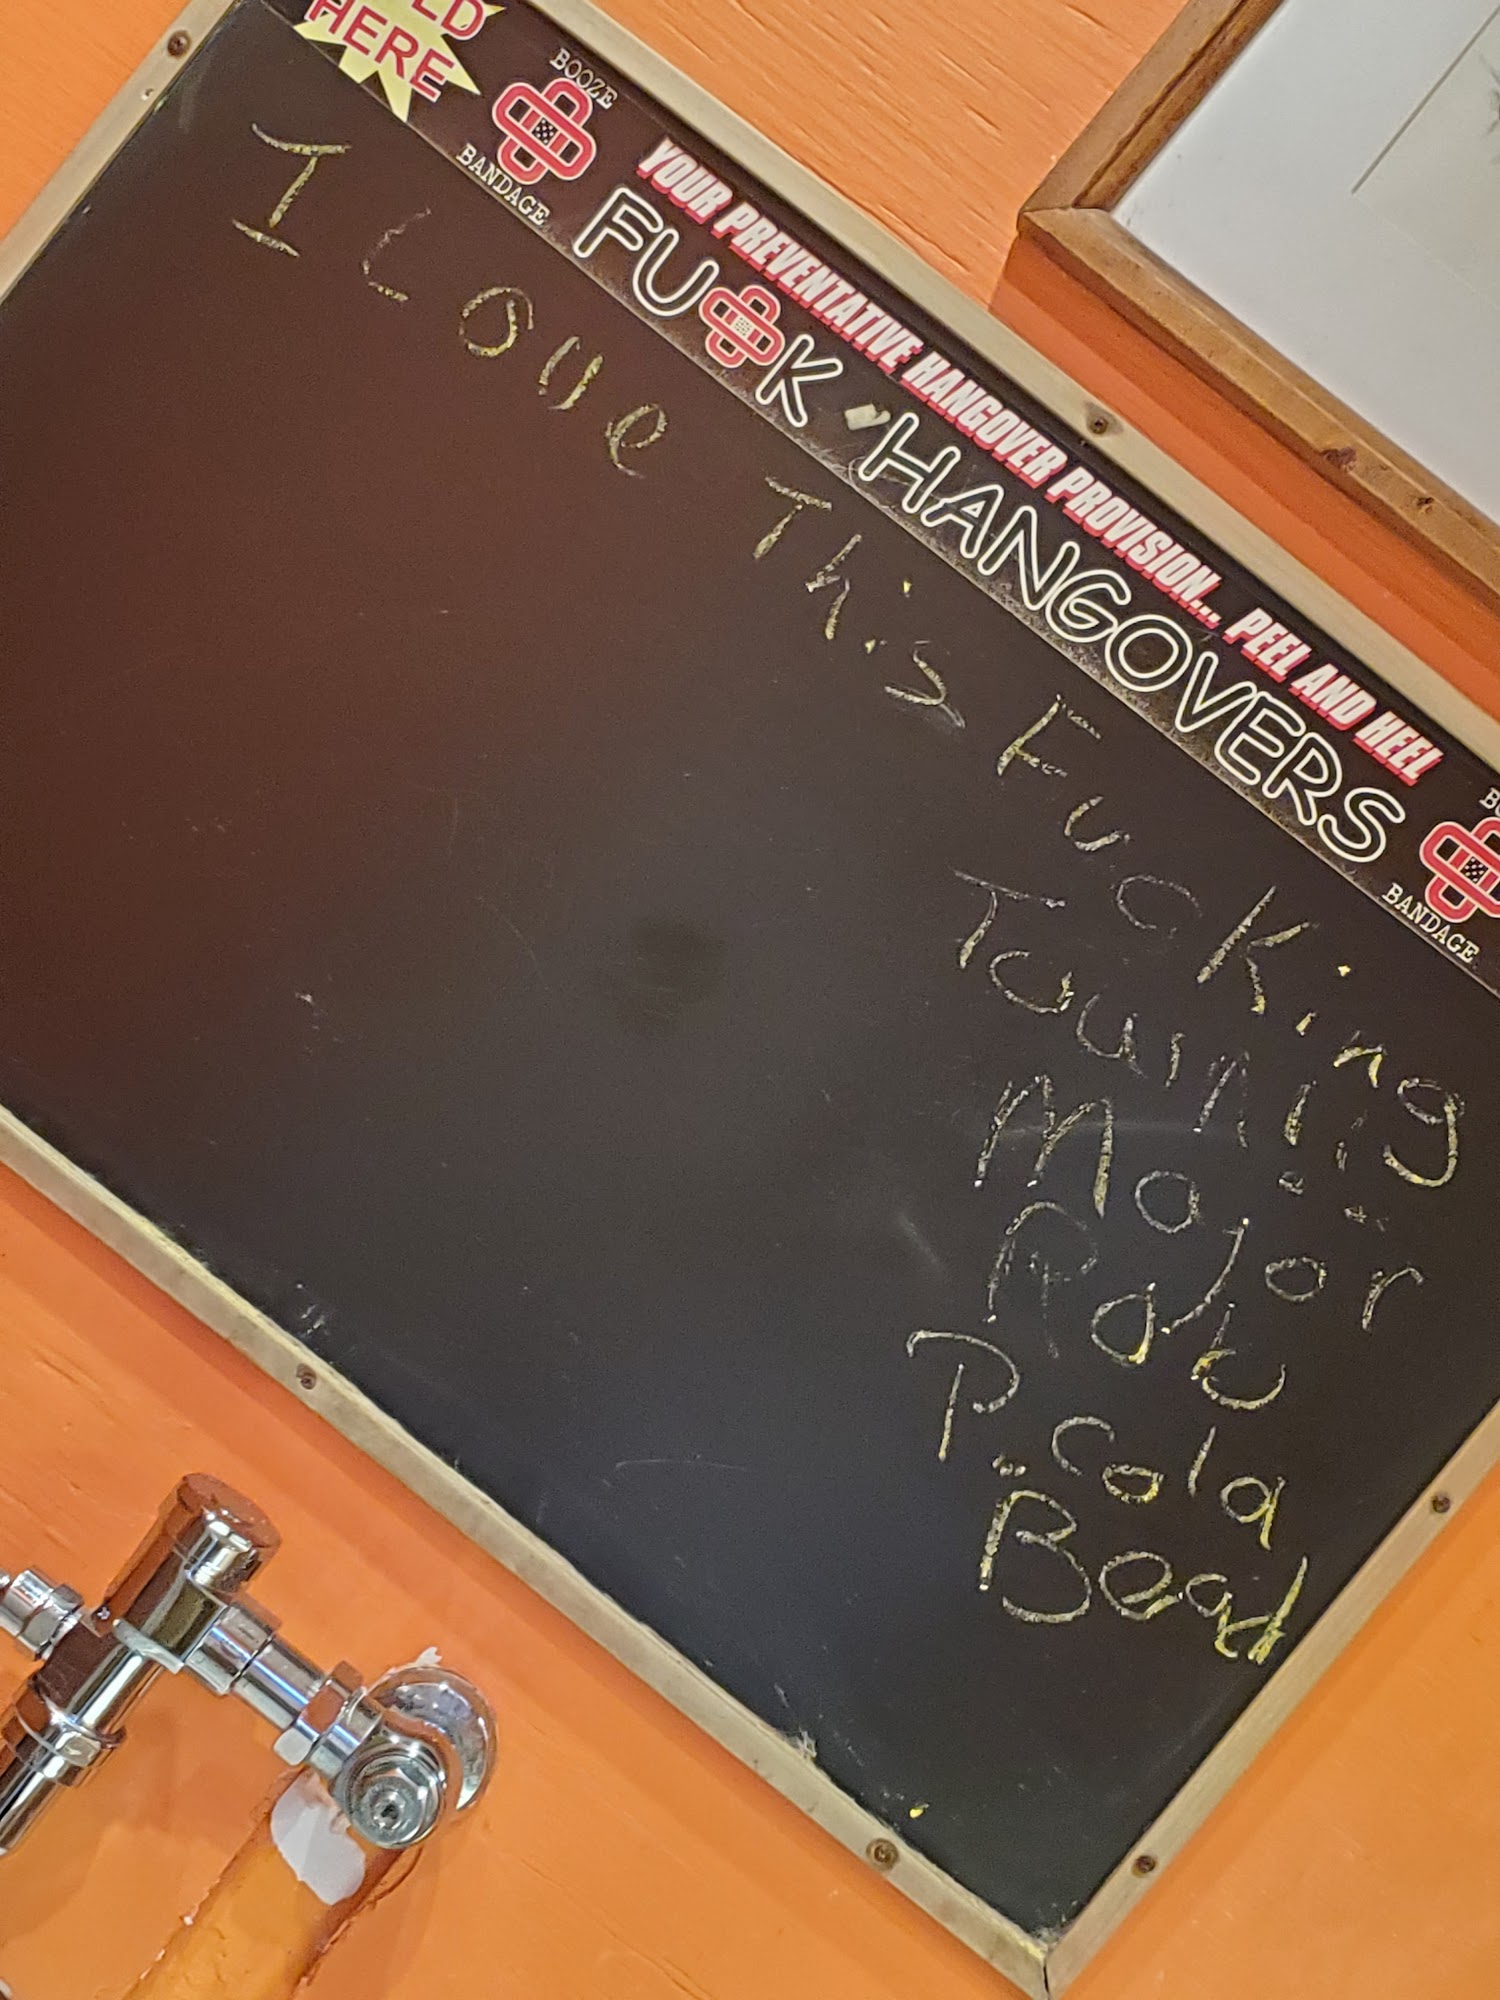 LD
HERE
BOOZE
BANDAGE
YOUR PREVENTATIVE HANGOVER PROVISION... PEEL AND HEEL
FU K HANGOVERS
BO
BANDAGE
I Love This Fucking
Major
P.cola
Bead